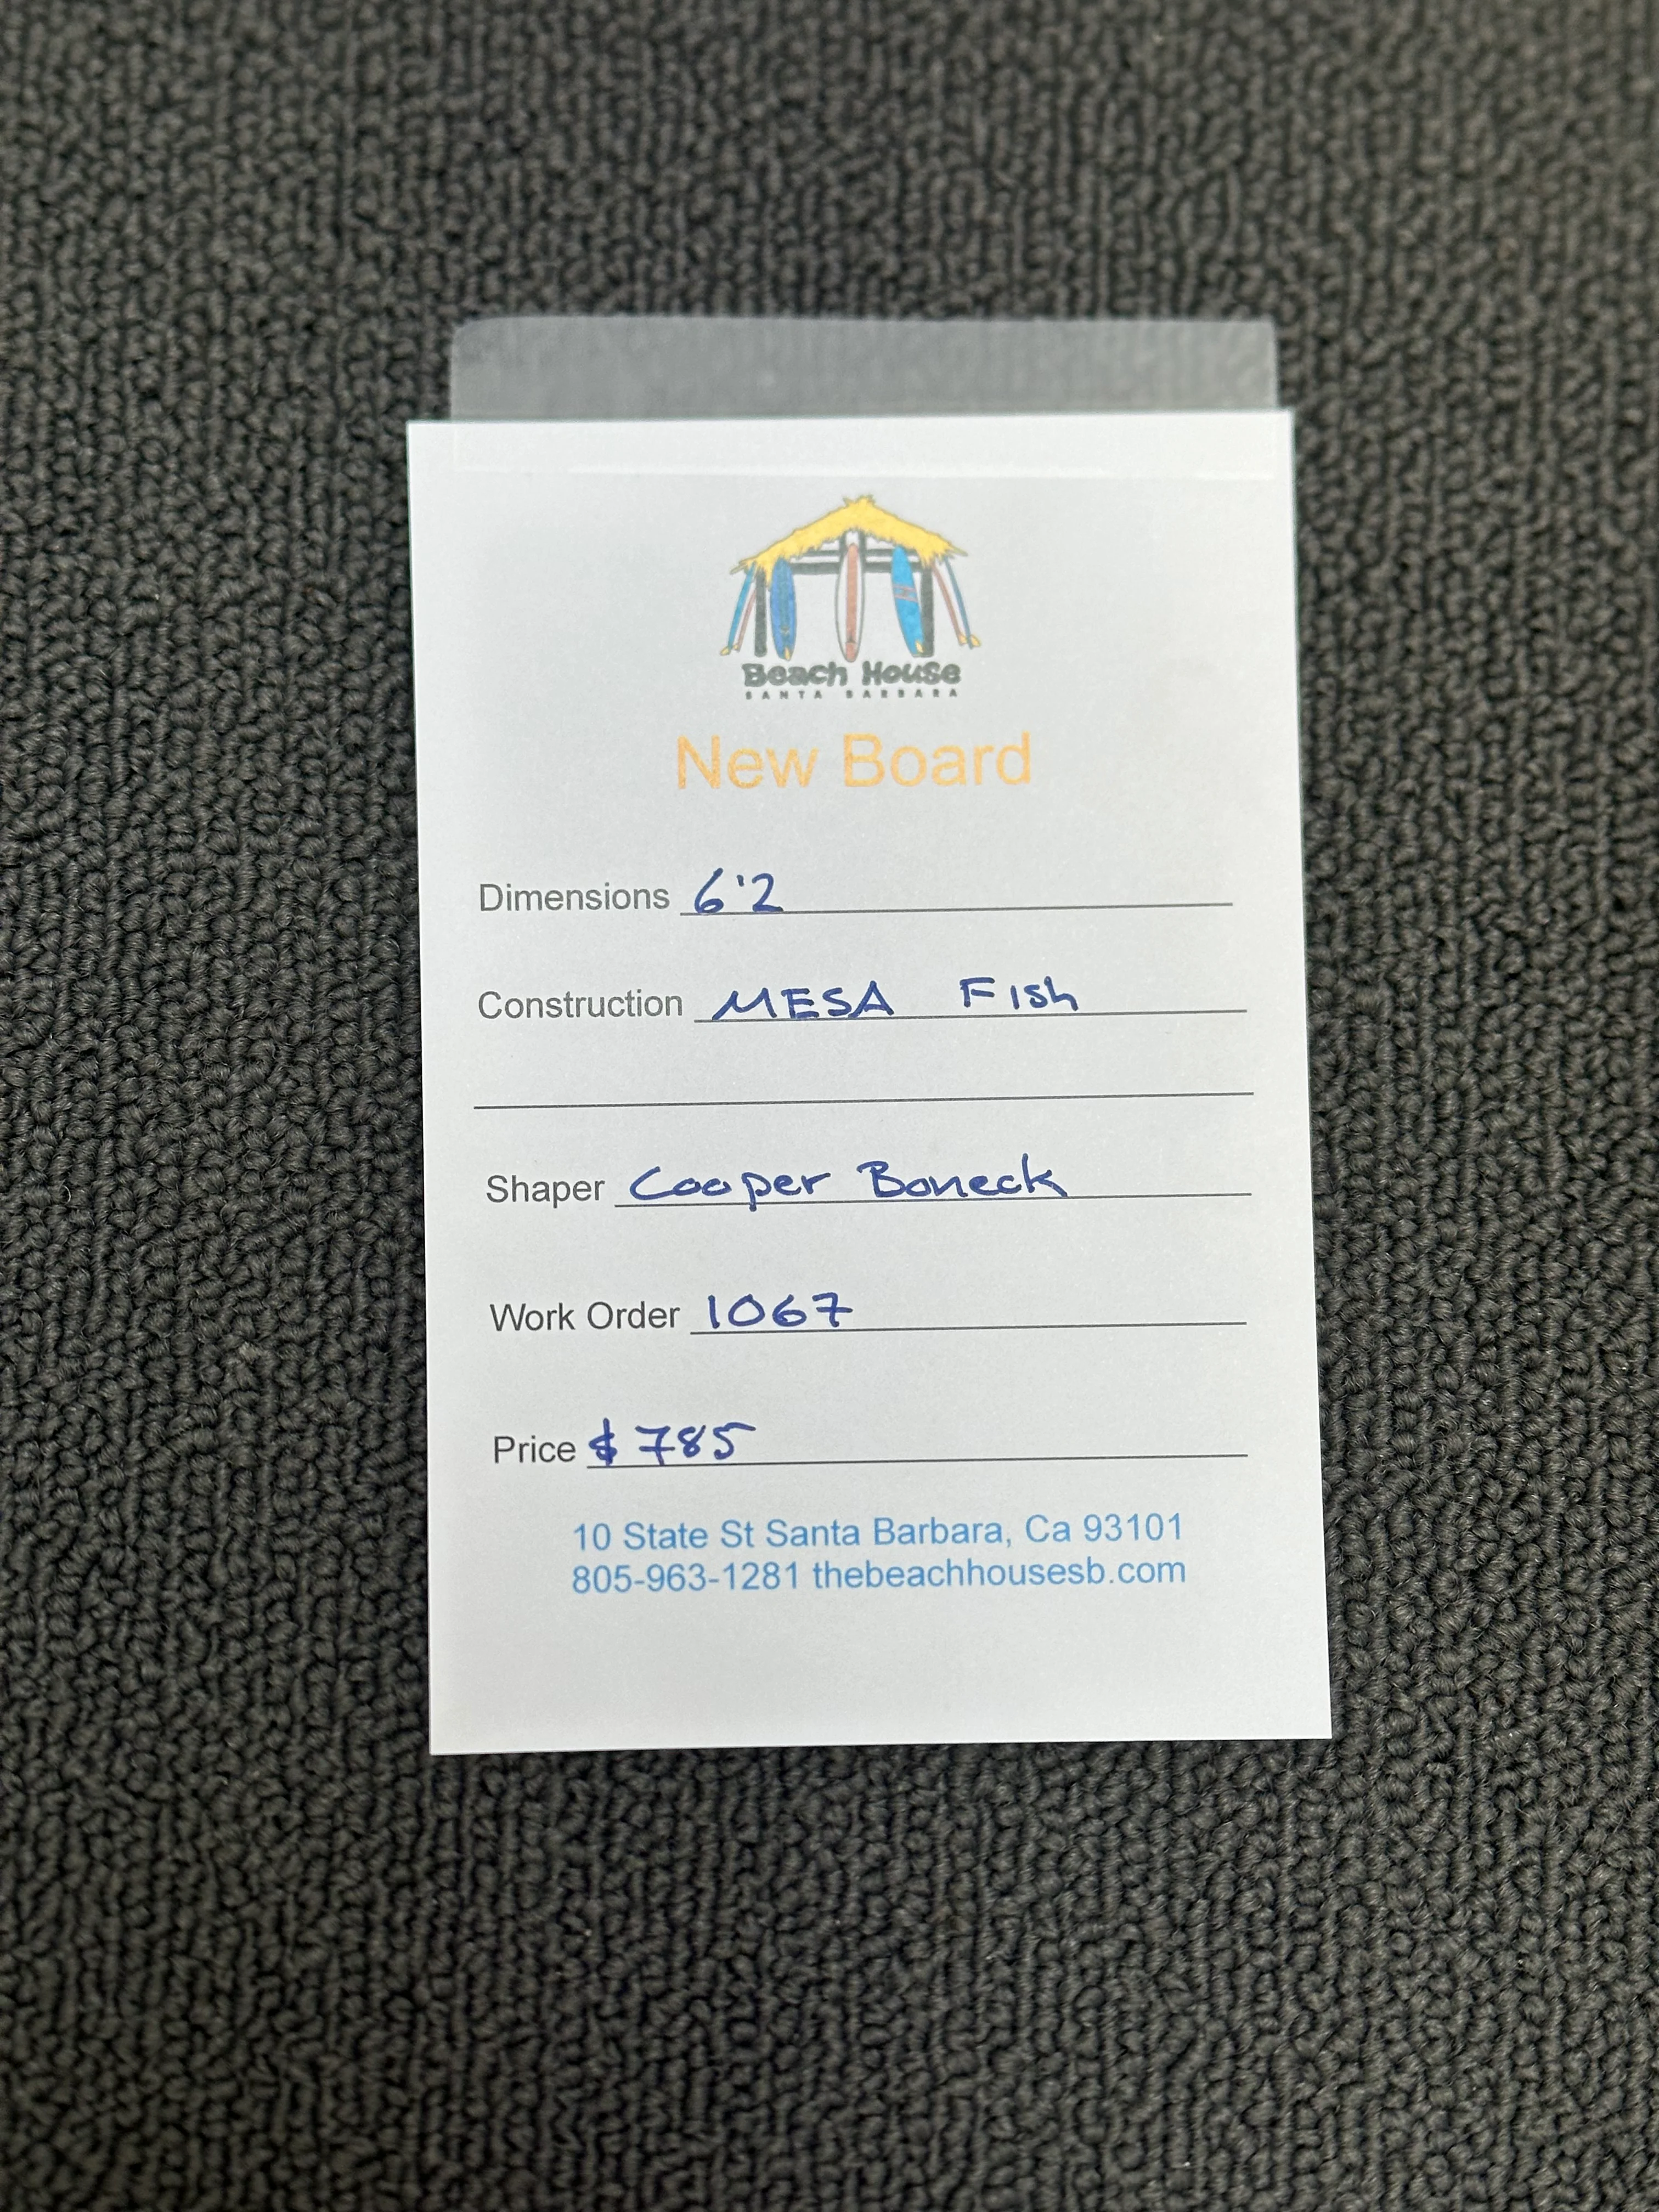 Beach House
SANTA BARBARA
New Board
Dimensions 6'2
Construction MESA Fish
Shaper Cooper Boneck
Work Order 1067
Price $785
10 State St Santa Barbara, Ca 93101
805-963-1281 thebeachhousesb.com